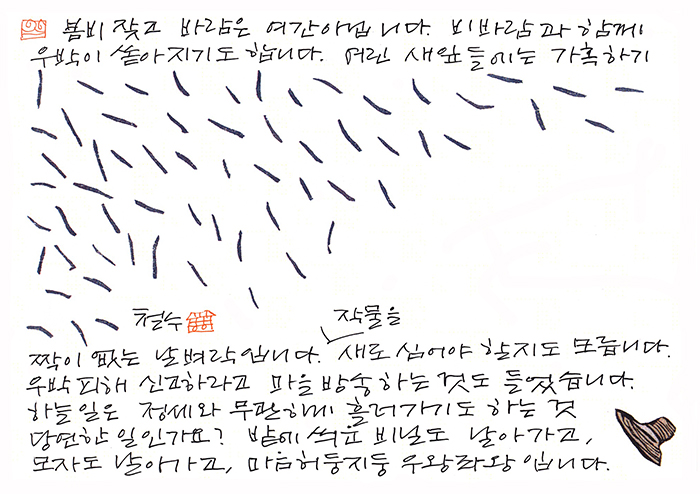 봄비 잦고 바람은 여간아닙니다. 비바람과 함께
우박이 쏟아지기도 합니다. 어린 새잎들에는 가혹하기
철수
작물을
짝이 없는 날벼락입니다. 새로 심어야 할지도 모릅니다.
우박피해 신고하라고 마을방송하는 것도 들었습니다.
하늘일은 정세와 무관하게 흘러가기도 하는 것
당연한 일인가요? 밭에 씌운 비닐도 날아가고,
모자도 날아가고, 마음허둥지둥 우왕좌왕 입니다.